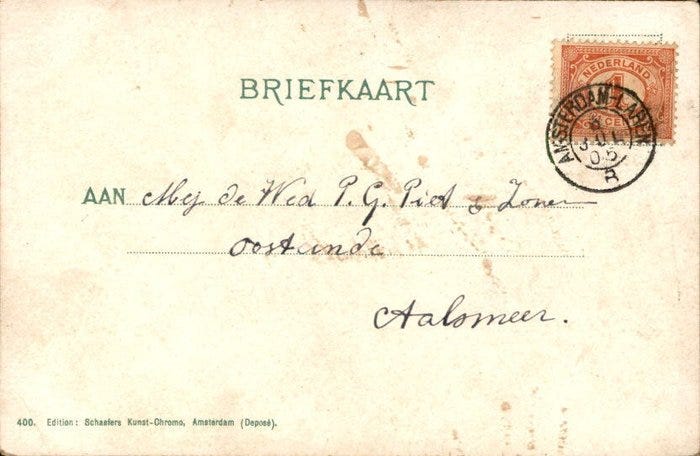 BRIEFKAART
NEDERLAND
1
CENT
AMSTERDAM-LAREN
3 JUL
05
A
AAN Mej de Wed P. G. Piet & Zonen
Oosteinde
Aalsmeer.
400. Edition: Schaefers Kunst-Chromo, Amsterdam (Deposé).